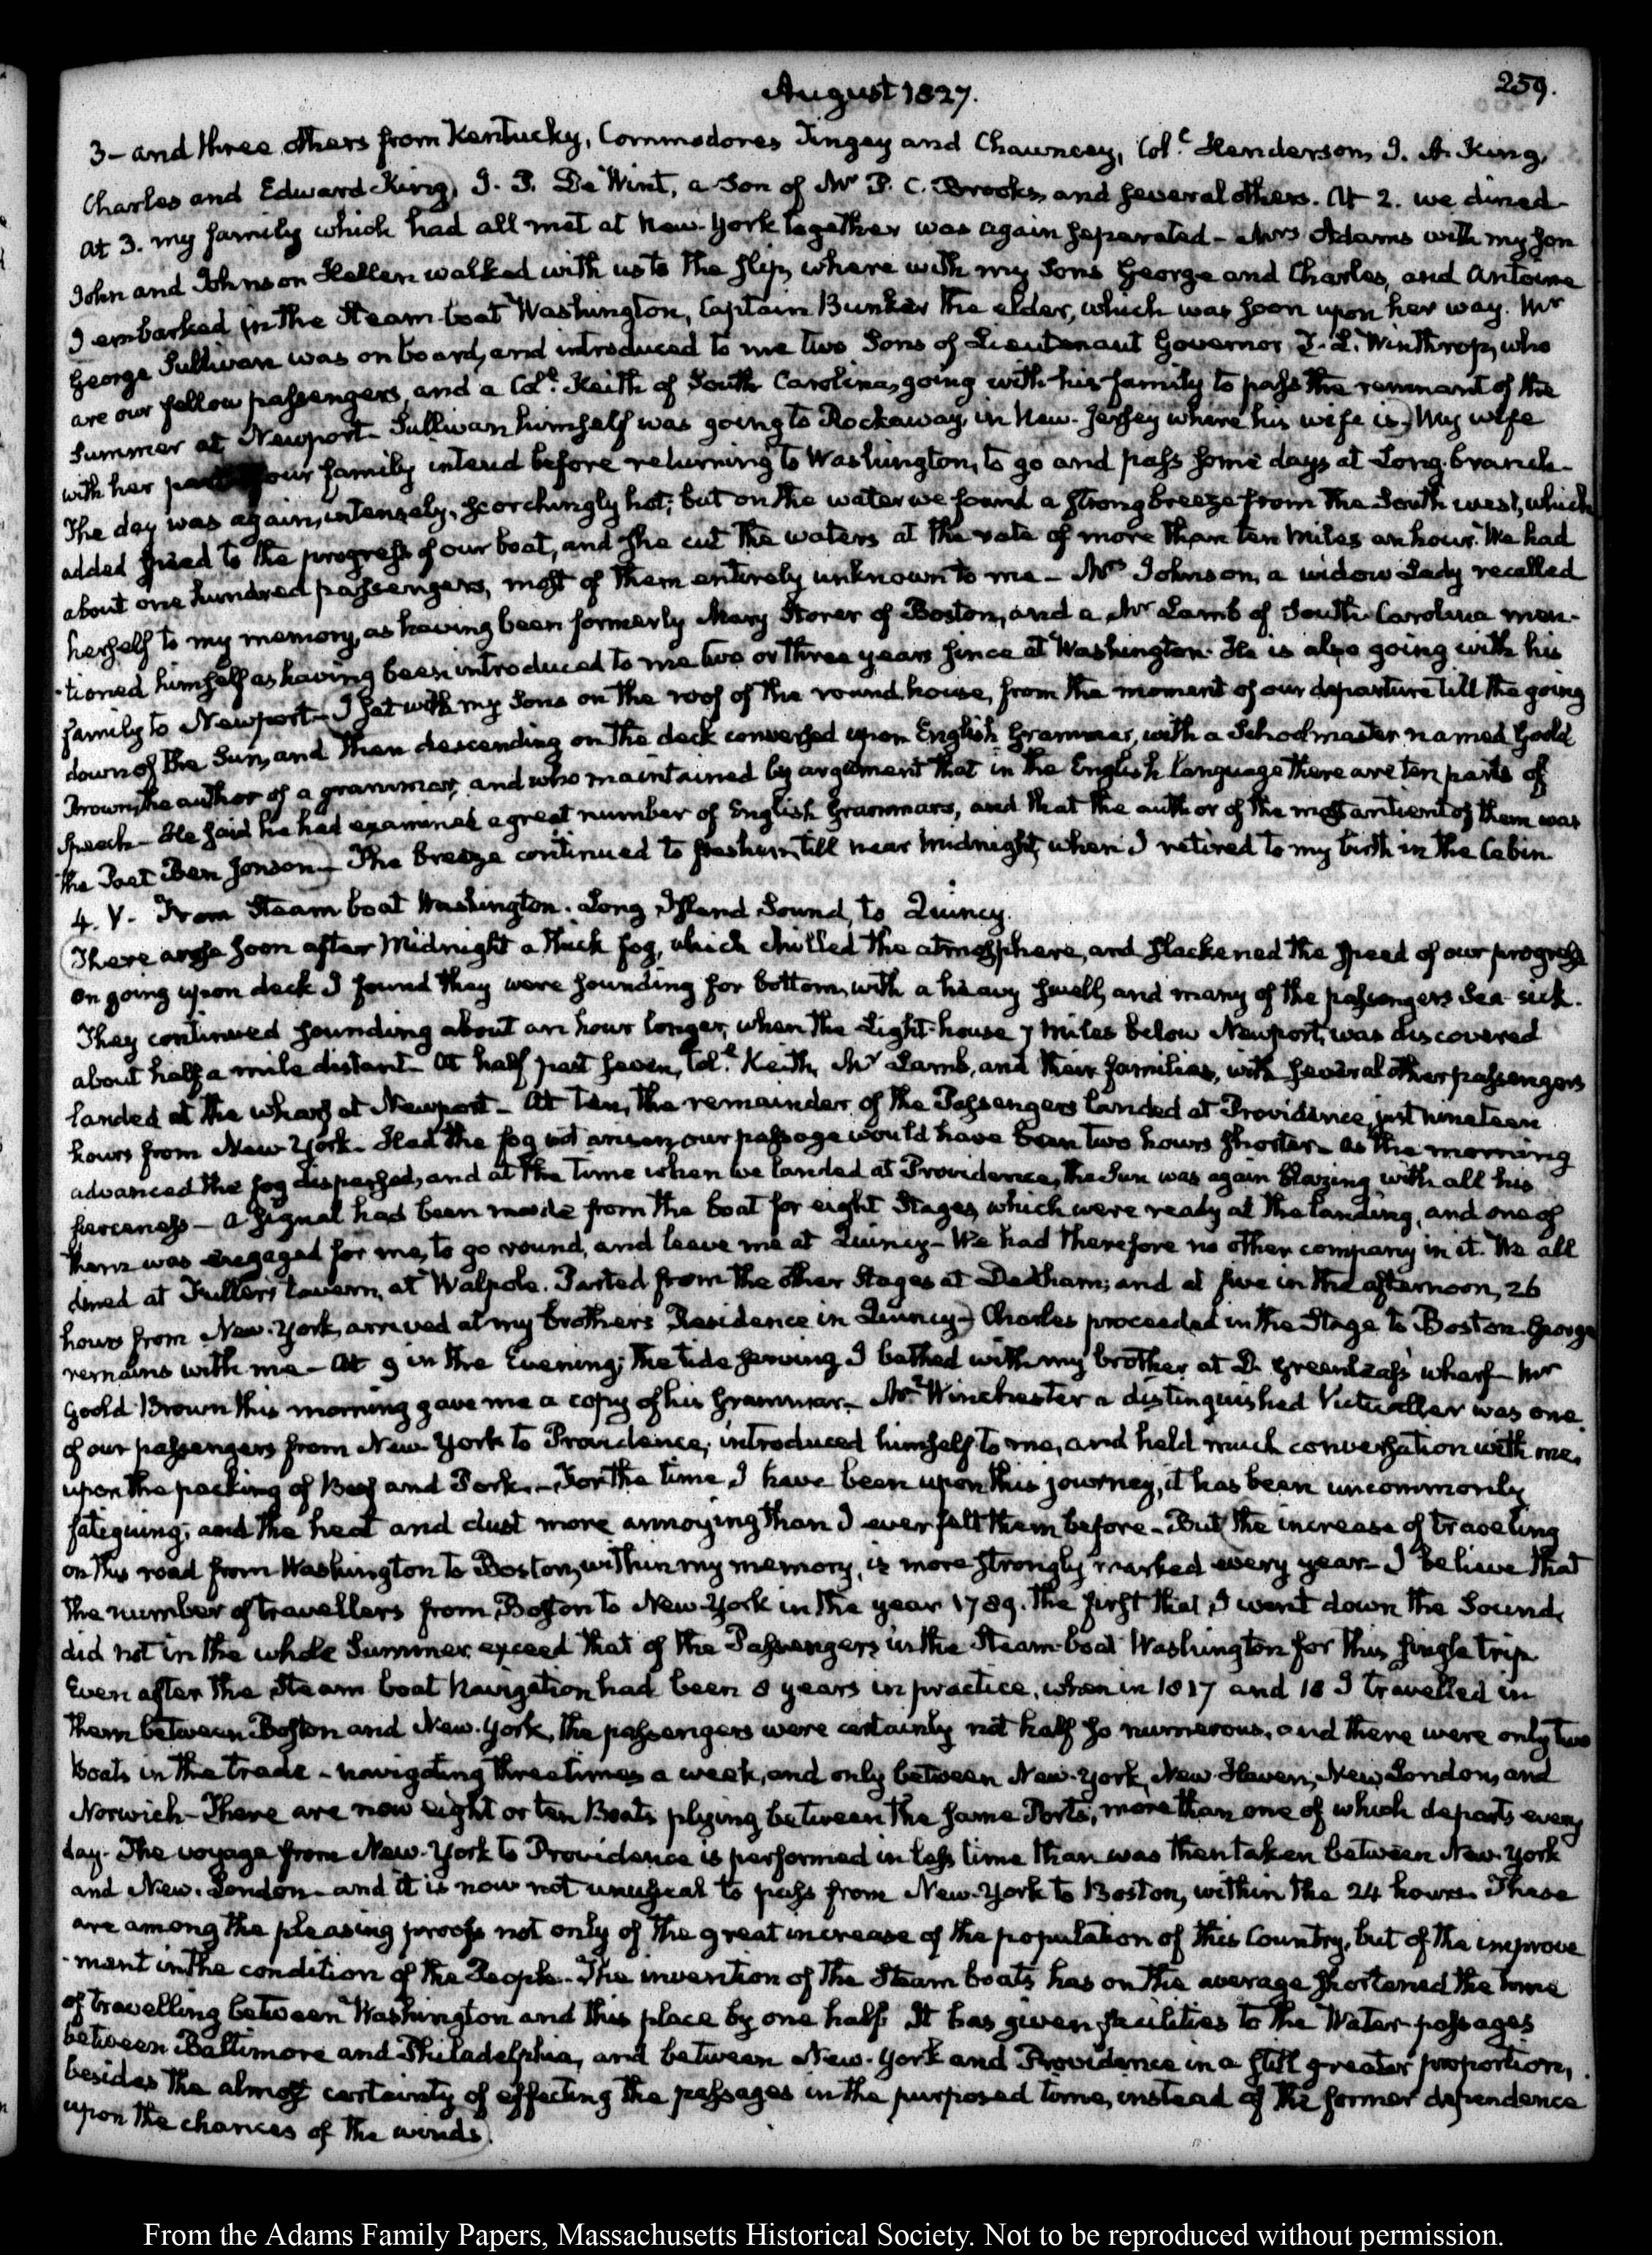 August 1827.
259.
3- and three others from Kentucky, Commodores Tingey and Chauncey, Col.l Henderson, J. A. King,
Charles and Edward King, J. P. De Wint, a Son of Mr P. C. Brooks, and several others. At 2. we dined
at 3. my family which had all met at New-York together was again separated - Mrs Adams with my Son
John and Johnson Hellen walked with us to the slip, where with my Sons George and Charles, and Antoine
I embarked in the Steam-boat Washington, Captain Bunker the elder, which was soon upon her way. Mr
George Sullivan was on board, and introduced to me two Sons of Lieutenant Governor T. L. Winthrop, who
are our fellow passengers, and a Col.l Keith of South Carolina, going with his family to pass the remnant of the
Summer at Newport- Sullivan himself was going to Rockaway in New-Jersey where his wife is. My wife
with her part of our family intend before returning to Washington, to go and pass some days at Long-branch-
The day was again, intensely, scorchingly hot; but on the water we found a strong breeze from the South west, which
added speed to the progress of our boat, and she cut the waters at the rate of more than ten Miles an hour. We had
about one hundred passengers, most of them entirely unknown to me - Mrs Johnson, a widow Lady recalled
herself to my memory, as having been formerly Mary Storer of Boston, and a Mr Lamb of South-Carolina men-
-tioned himself as having been introduced to me two or three years since at Washington. He is also going with his
family to Newport- I sat with my Sons on the roof of the round house, from the moment of our departure till the going
down of the Sun, and then descending on the deck conversed upon English Grammar, with a Schoolmaster named Goold
Brown, the author of a grammar, and who maintained by argument that in the English language there are ten parts of
speech- He said he had examined a great number of English Grammars, and that the author of the most antient of them was
the Poet Ben Jonson- The breeze continued to freshen, till near Midnight, when I retired to my birth in the Cabin.
4. V. From Steam boat Washington. Long Island Sound, to Quincy.
There arose soon after Midnight a thick fog, which chilled the atmosphere, and slackened the speed of our progress
on going upon deck I found they were sounding for bottom, with a heavy swell, and many of the passengers Sea-sick.
They continued sounding about an hour longer, when the Light-house 7 miles below Newport, was discovered
about half a mile distant- At half past seven, Col.l Keith, Mr Lamb, and their families, with several other passengers
landed at the wharf at Newport- At ten, the remainder of the Passengers landed at Providence, just nineteen
hours from New-York- Had the fog not arisen, our passage would have been two hours shorter- As the morning
advanced the fog dispersed, and at the time when we landed at Providence, the Sun was again blazing with all his
fierceness- A signal had been made from the boat for eight Stages, which were ready at the landing, and one of
them was engaged for me, to go round, and leave me at Quincy- We had therefore no other company in it. We all
dined at Fuller's tavern, at Walpole. Parted from the other Stages at Dedham; and at five in the afternoon, 26
hours from New-York, arrived at my brother's Residence in Quincy- Charles proceeded in the Stage to Boston. George
remains with me- At 9 in the Evening; the tide serving I bathed with my brother at D. Greenleaf's wharf- Mr
Goold Brown this morning gave me a copy of his Grammar- Mr Winchester a distinguished Victualler was one
of our passengers from New-York to Providence; introduced himself to me, and held much conversation with me,
upon the packing of Beef and Pork.- For the time I have been upon this journey, it has been uncommonly
fatiguing; and the heat and dust more annoying than I ever felt them before- But the increase of traveling
on this road from Washington to Boston, within my memory, is more strongly marked every year- I believe that
the number of travellers from Boston to New-York in the year 1789. the first that I went down the Sound,
did not in the whole Summer exceed that of the Passengers in the Steam-boat Washington for this single trip.
Even after the Steam boat Navigation had been 8 years in practice, when in 1817 and 18 I travelled in
them between Boston and New-York, the passengers were certainly not half so numerous, and there were only two
Boats in the trade - navigating three times a week, and only between New-York, New-Haven, New London, and
Norwich- There are now eight or ten Boats plying between the same Ports, more than one of which departs every
day. The voyage from New-York to Providence is performed in less time than was then taken between New-York
and New-London- and it is now not unusual to pass from New-York to Boston, within the 24 hours. These
are among the pleasing proofs not only of the great increase of the population of this Country, but of the improve
-ment in the condition of the People.- The invention of the Steam boats has on the average shortened the time
of travelling between Washington and this place by one half. It has given facilities to the Water-passages
between Baltimore and Philadelphia, and between New-York and Providence in a still greater proportion,
besides the almost certainty of effecting the passages in the purposed time, instead of the former dependence
upon the chances of the winds.
From the Adams Family Papers, Massachusetts Historical Society. Not to be reproduced without permission.